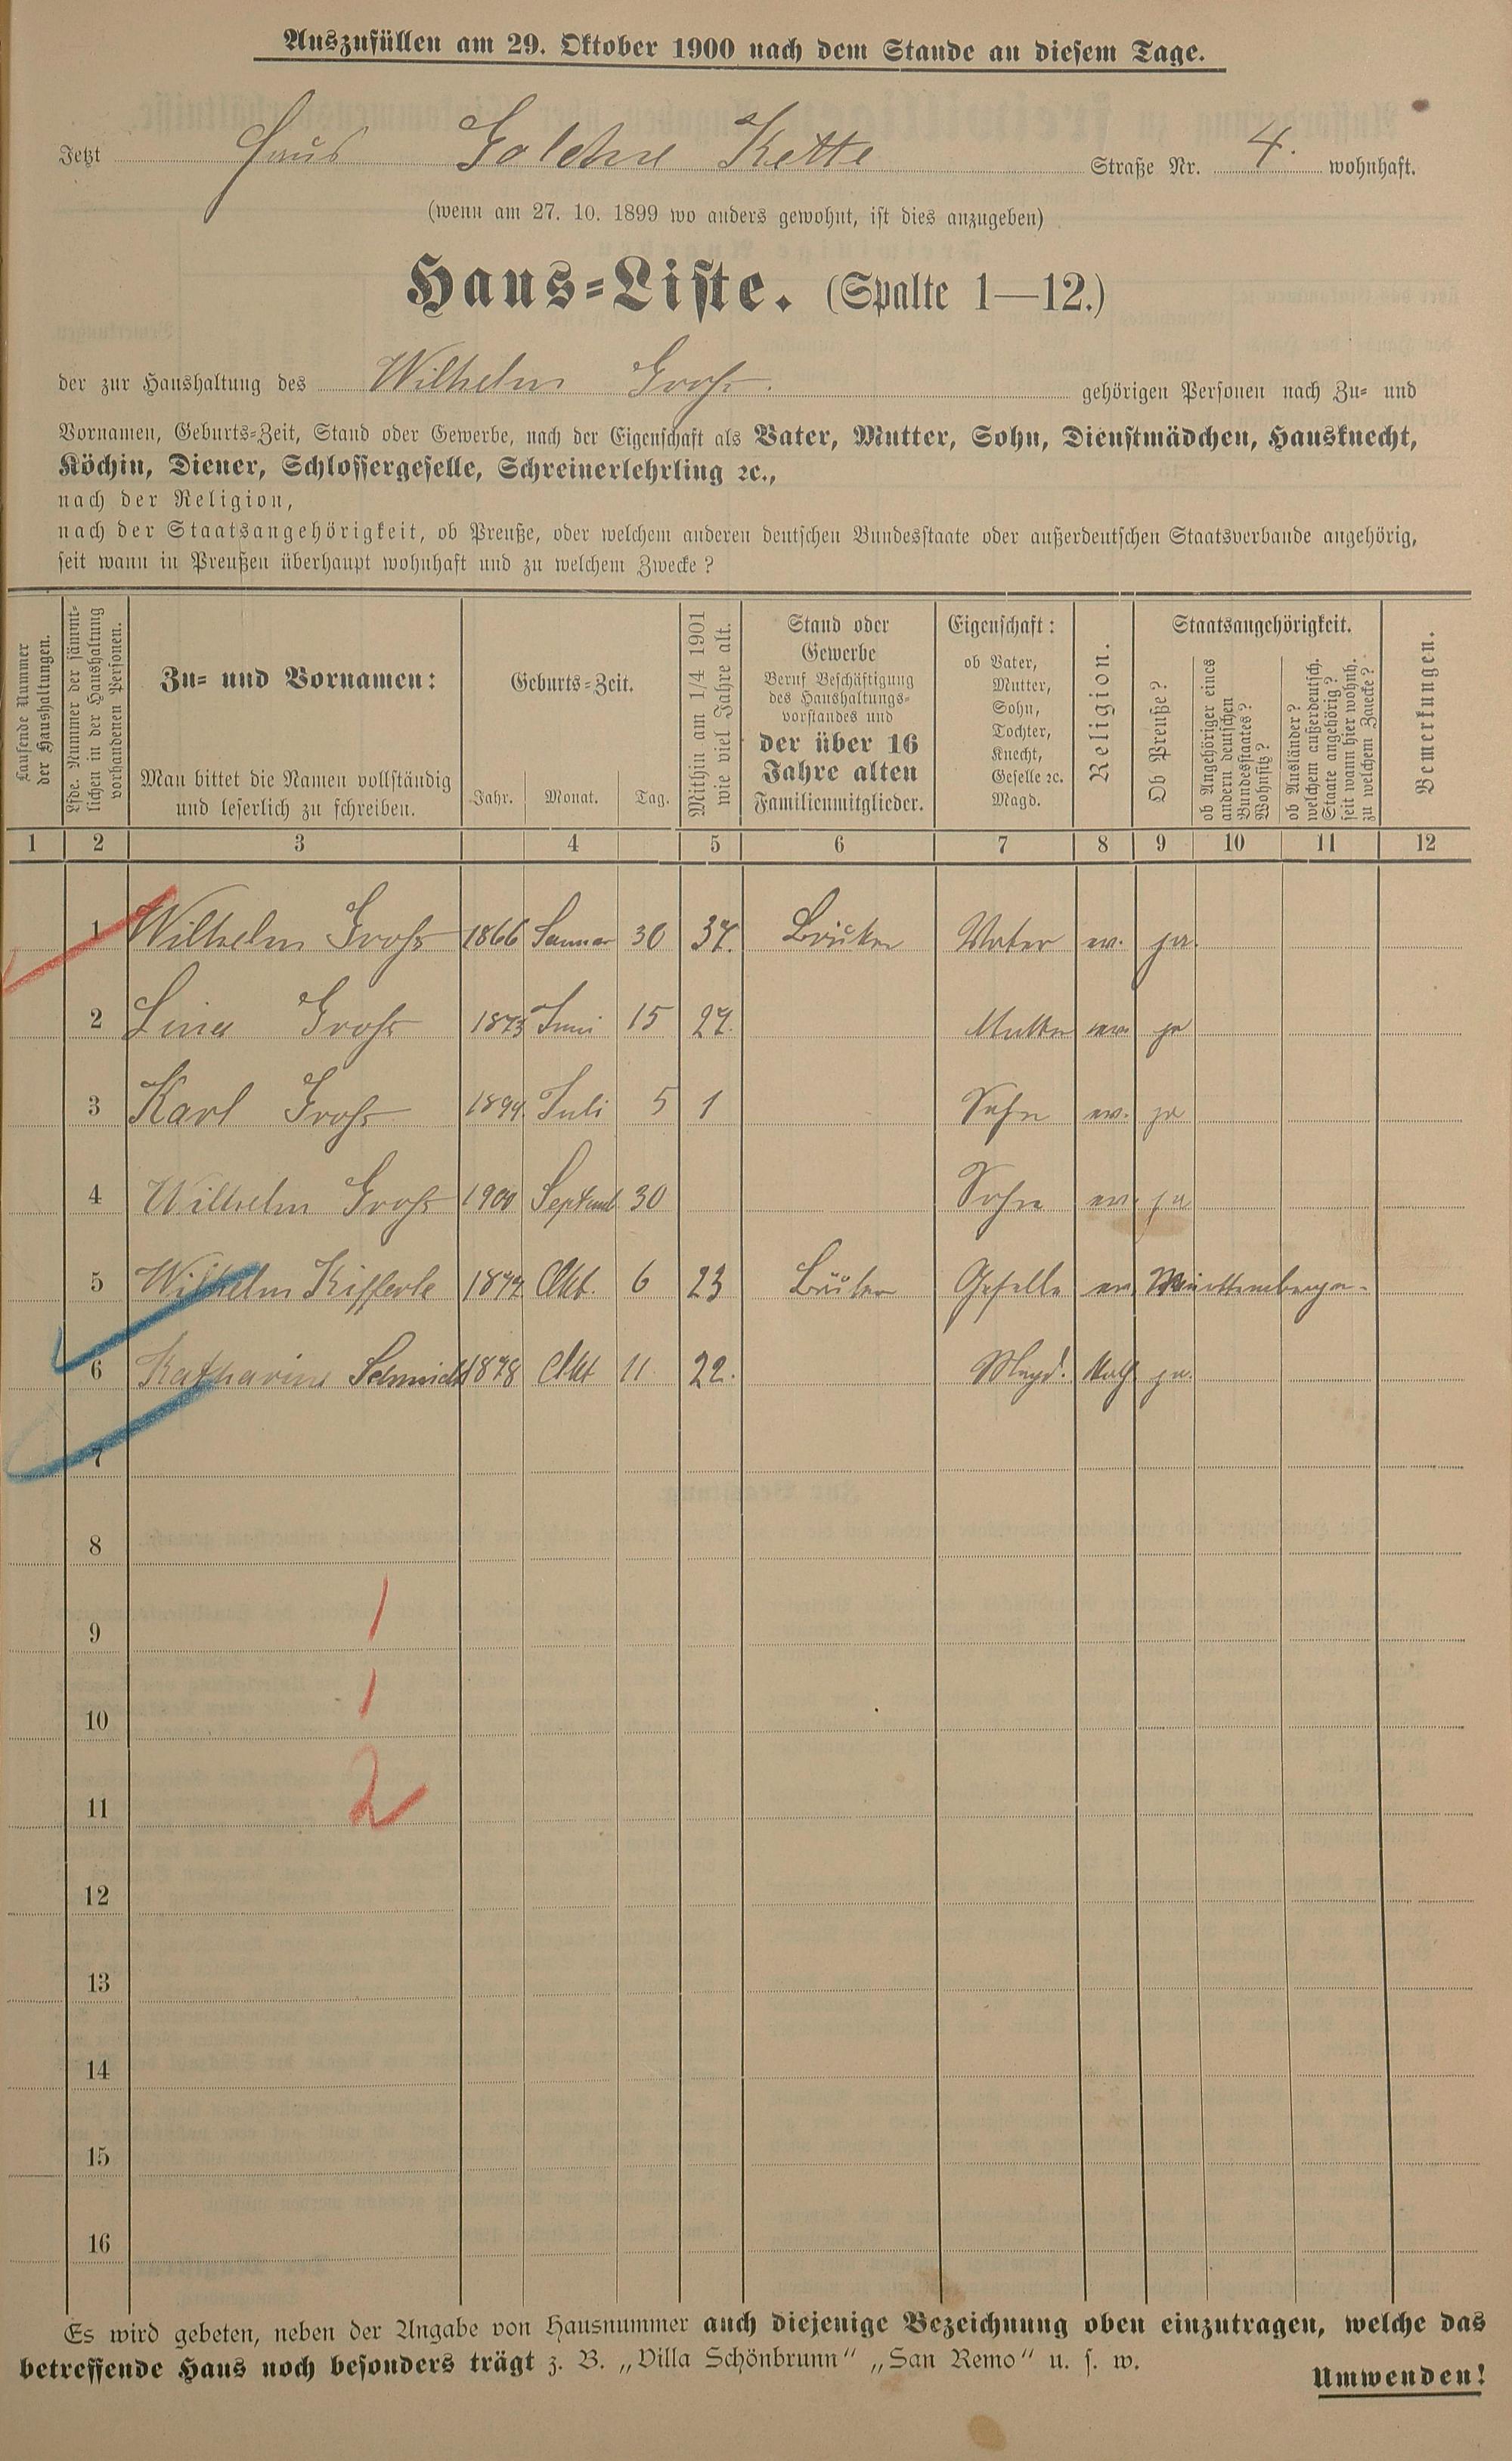 Auszufüllen am 29. Oktober 1900 nach dem Stande an diesem Tage.
Jetzt Haus Goldene Kette Straße Nr. 4. wohnhaft.
(wenn am 27. 10. 1899 wo anders gewohnt, ist dies anzugeben)
Haus-Liste. (Spalte 1—12.)
der zur Haushaltung des Wilhelm Groß. gehörigen Personen nach Zu- und
Vornamen, Geburts-Zeit, Stand oder Gewerbe, nach der Eigenschaft als Vater, Mutter, Sohn, Dienstmädchen, Hausknecht,
Köchin, Diener, Schlossergeselle, Schreinerlehrling ꝛc.,
nach der Religion,
nach der Staatsangehörigkeit, ob Preuße, oder welchem anderen deutschen Bundesstaate oder außerdeutschen Staatsverbande angehörig,
seit wann in Preußen überhaupt wohnhaft und zu welchem Zwecke?
Laufende Nummer
der Haushaltungen.
Lfde. Nummer der sämmt-
lichen in der Haushaltung
vorhandenen Personen.
Zu- und Vornamen:
Man bittet die Namen vollständig
und leserlich zu schreiben.
Geburts-Zeit.
Jahr. Monat. Tag.
Mithin am 1/4 1901
wie viel Jahre alt.
Stand oder
Gewerbe
Beruf Beschäftigung
des Haushaltungs-
vorstandes und
der über 16
Jahre alten
Familienmitglieder.
Eigenschaft:
ob Vater,
Mutter,
Sohn,
Tochter,
Knecht,
Geselle ꝛc.
Magd.
Religion.
Staatsangehörigkeit.
Ob Preuße?
ob Angehöriger eines
andern deutschen
Bundesstaates?
Wohnsitz?
ob Ausländer?
welchem außerdeutsch.
Staate angehörig?
seit wann hier wohnh.
zu welchem Zwecke?
Bemerkungen.
1 2 3 4 5 6 7 8 9 10 11 12
1 Wilhelm Groß 1866 Januar 30 34. Vater ev. ja.
2 Lina Groß 1873 Juni 15 27. Mutter ev. ja
3 Karl Groß 1899. Juli 5 1 Sohn ev. ja
4 Wilhelm Groß 1900 Septemb 30 Sohn ev. ja
5 Wilhelm Kifferle 1877 Okt. 6 23 Geselle ev. Württemberger
6 Katharine Schmidt 1878 Okt 11 22. Magd. Kath. ja.
7
8
9 1
10 1
11 2
12
13
14
15
16
Es wird gebeten, neben der Angabe von Hausnummer auch diejenige Bezeichnung oben einzutragen, welche das
betreffende Haus noch besonders trägt z. B. „Villa Schönbrunn" „San Remo" u. s. w.
Umwenden!